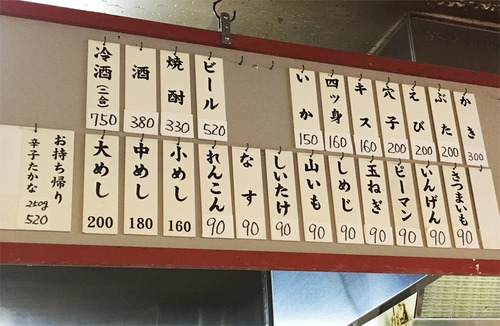 冷酒(二合) 750
酒 380
焼酎 330
ビール 520
いか 150
四ッ身 160
キス 160
穴子 200
えび 200
ぶた 200
かき 300
お持ち帰り
辛子たかな 250g
520
大めし 200
中めし 180
小めし 160
れんこん 90
なす 90
しいたけ 90
山いも 90
しめじ 90
玉ねぎ 90
ピーマン 90
いんげん 90
さつまいも 90